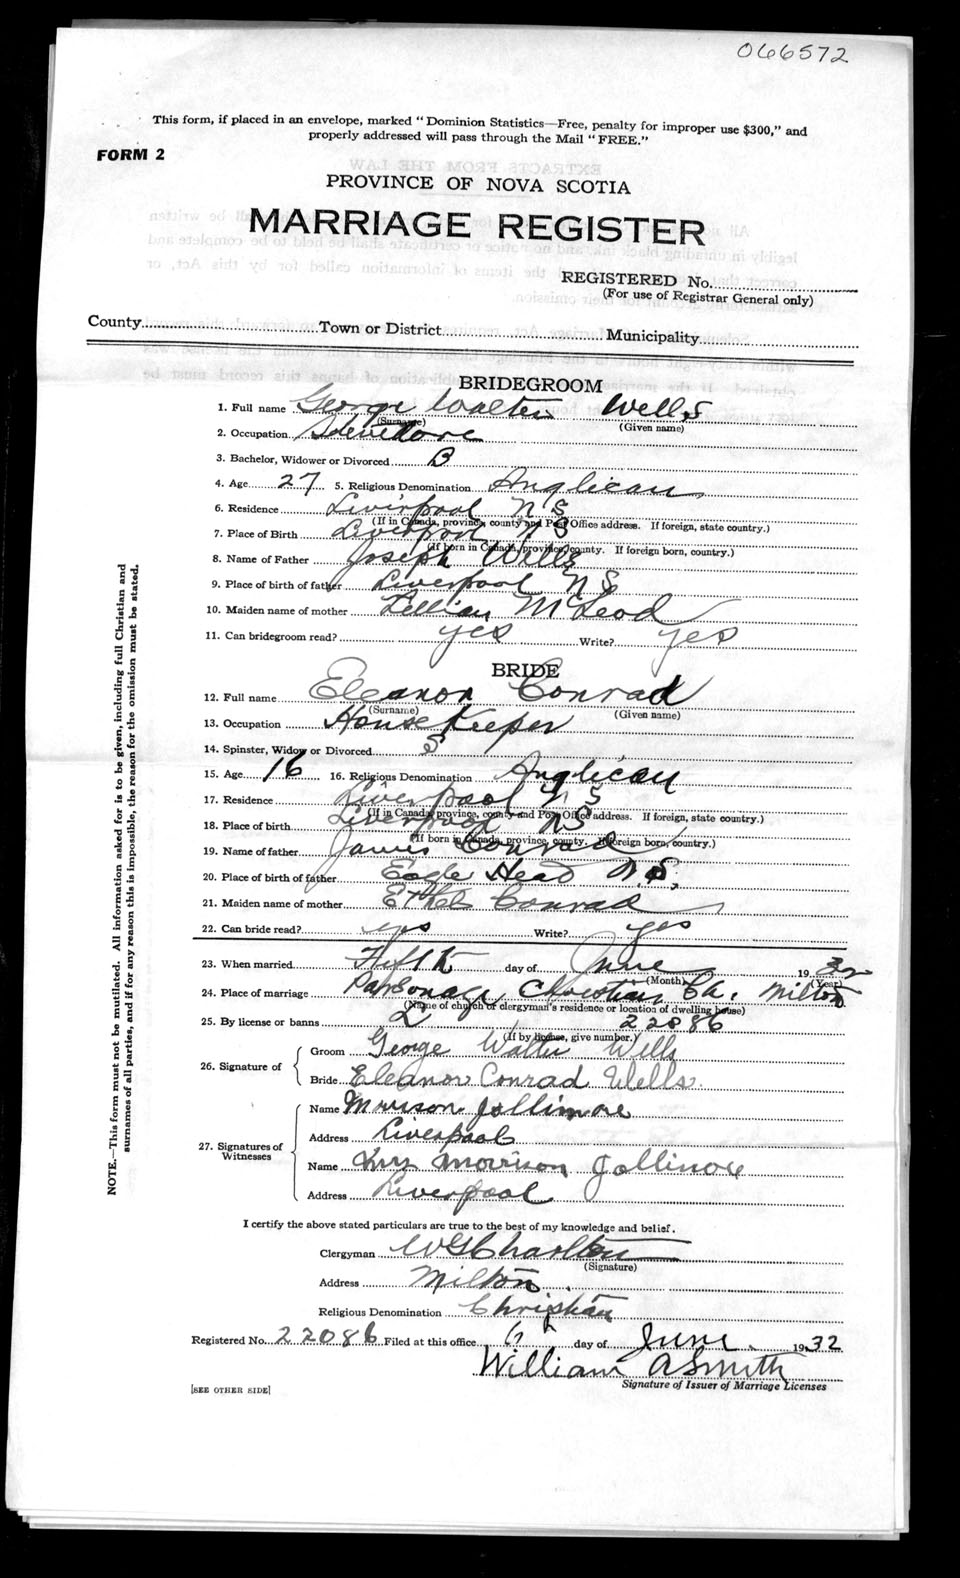 066572
This form, if placed in an envelope, marked "Dominion Statistics—Free, penalty for improper use $300," and
properly addressed will pass through the Mail "FREE."
FORM 2
PROVINCE OF NOVA SCOTIA
MARRIAGE REGISTER
REGISTERED No.
(For use of Registrar General only)
County Town or District Municipality
BRIDEGROOM
1. Full name George Walter Wells
(Surname) (Given name)
2. Occupation Stevedore
3. Bachelor, Widower or Divorced B
4. Age 27 5. Religious Denomination Anglican
6. Residence Liverpool N S
(If in Canada, province, county and Post Office address. If foreign, state country.)
7. Place of Birth Liverpool N S
(If born in Canada, province, county. If foreign born, country.)
8. Name of Father Joseph Wells
9. Place of birth of father Liverpool N S
10. Maiden name of mother Lillian McLeod
11. Can bridegroom read? yes Write? yes
BRIDE
12. Full name Eleanor Conrad
(Surname) (Given name)
13. Occupation House Keeper
14. Spinster, Widow or Divorced S
15. Age 16 16. Religious Denomination Anglican
17. Residence Liverpool N S
(If in Canada, province, county and Post Office address. If foreign, state country.)
18. Place of birth Liverpool NS
(If born in Canada, province, county. If foreign born, country.)
19. Name of father James Conrad
20. Place of birth of father Eagle Head N.S.
21. Maiden name of mother Ethel Conrad
22. Can bride read? yes Write? yes
23. When married Fifth day of June 1932
(Month) (Year)
24. Place of marriage Parsonage Christian Ch. Milton
(Name of church or clergyman's residence or location of dwelling house)
25. By license or banns L 22086
(If by license, give number.)
26. Signature of Groom George Walter Wells
Bride Eleanor Conrad Wells.
27. Signatures of Witnesses Name Morrison Jollimore
Address Liverpool
Name Mrs Morrison Jollimore
Address Liverpool
I certify the above stated particulars are true to the best of my knowledge and belief.
Clergyman W G Charlton
(Signature)
Address Milton.
Religious Denomination Christian
Registered No. 22086 Filed at this office 6th day of June 1932
William A Smith
Signature of Issuer of Marriage Licenses
[SEE OTHER SIDE]
NOTE.—This form must not be mutilated. All information asked for is to be given, including full Christian and
surnames of all parties, and if for any reason this is impossible, the reason for the omission must be stated.